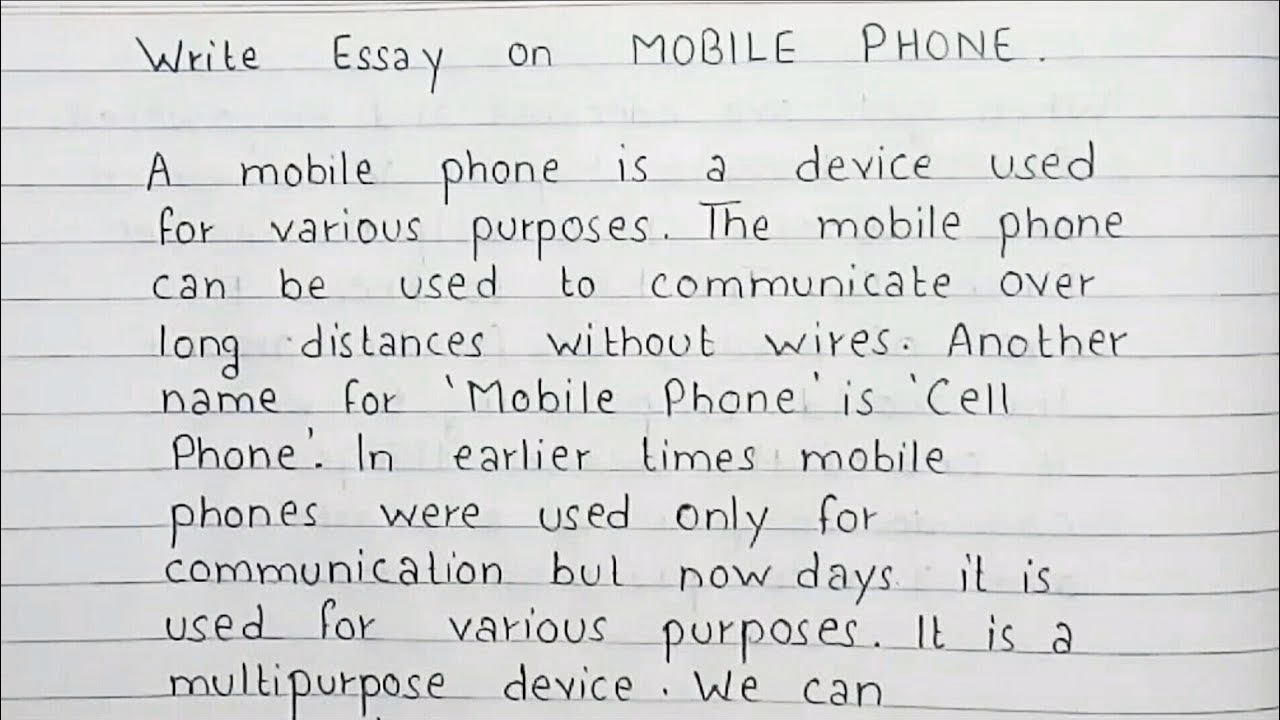 Write Essay on MOBILE PHONE.
A mobile phone is a device used
for various purposes. The mobile phone
can be used to communicate over
long distances without wires. Another
name for 'Mobile Phone' is 'Cell
Phone'. In earlier times mobile
phones were used only for
communication but now days it is
used for various purposes. It is a
multipurpose device. We can